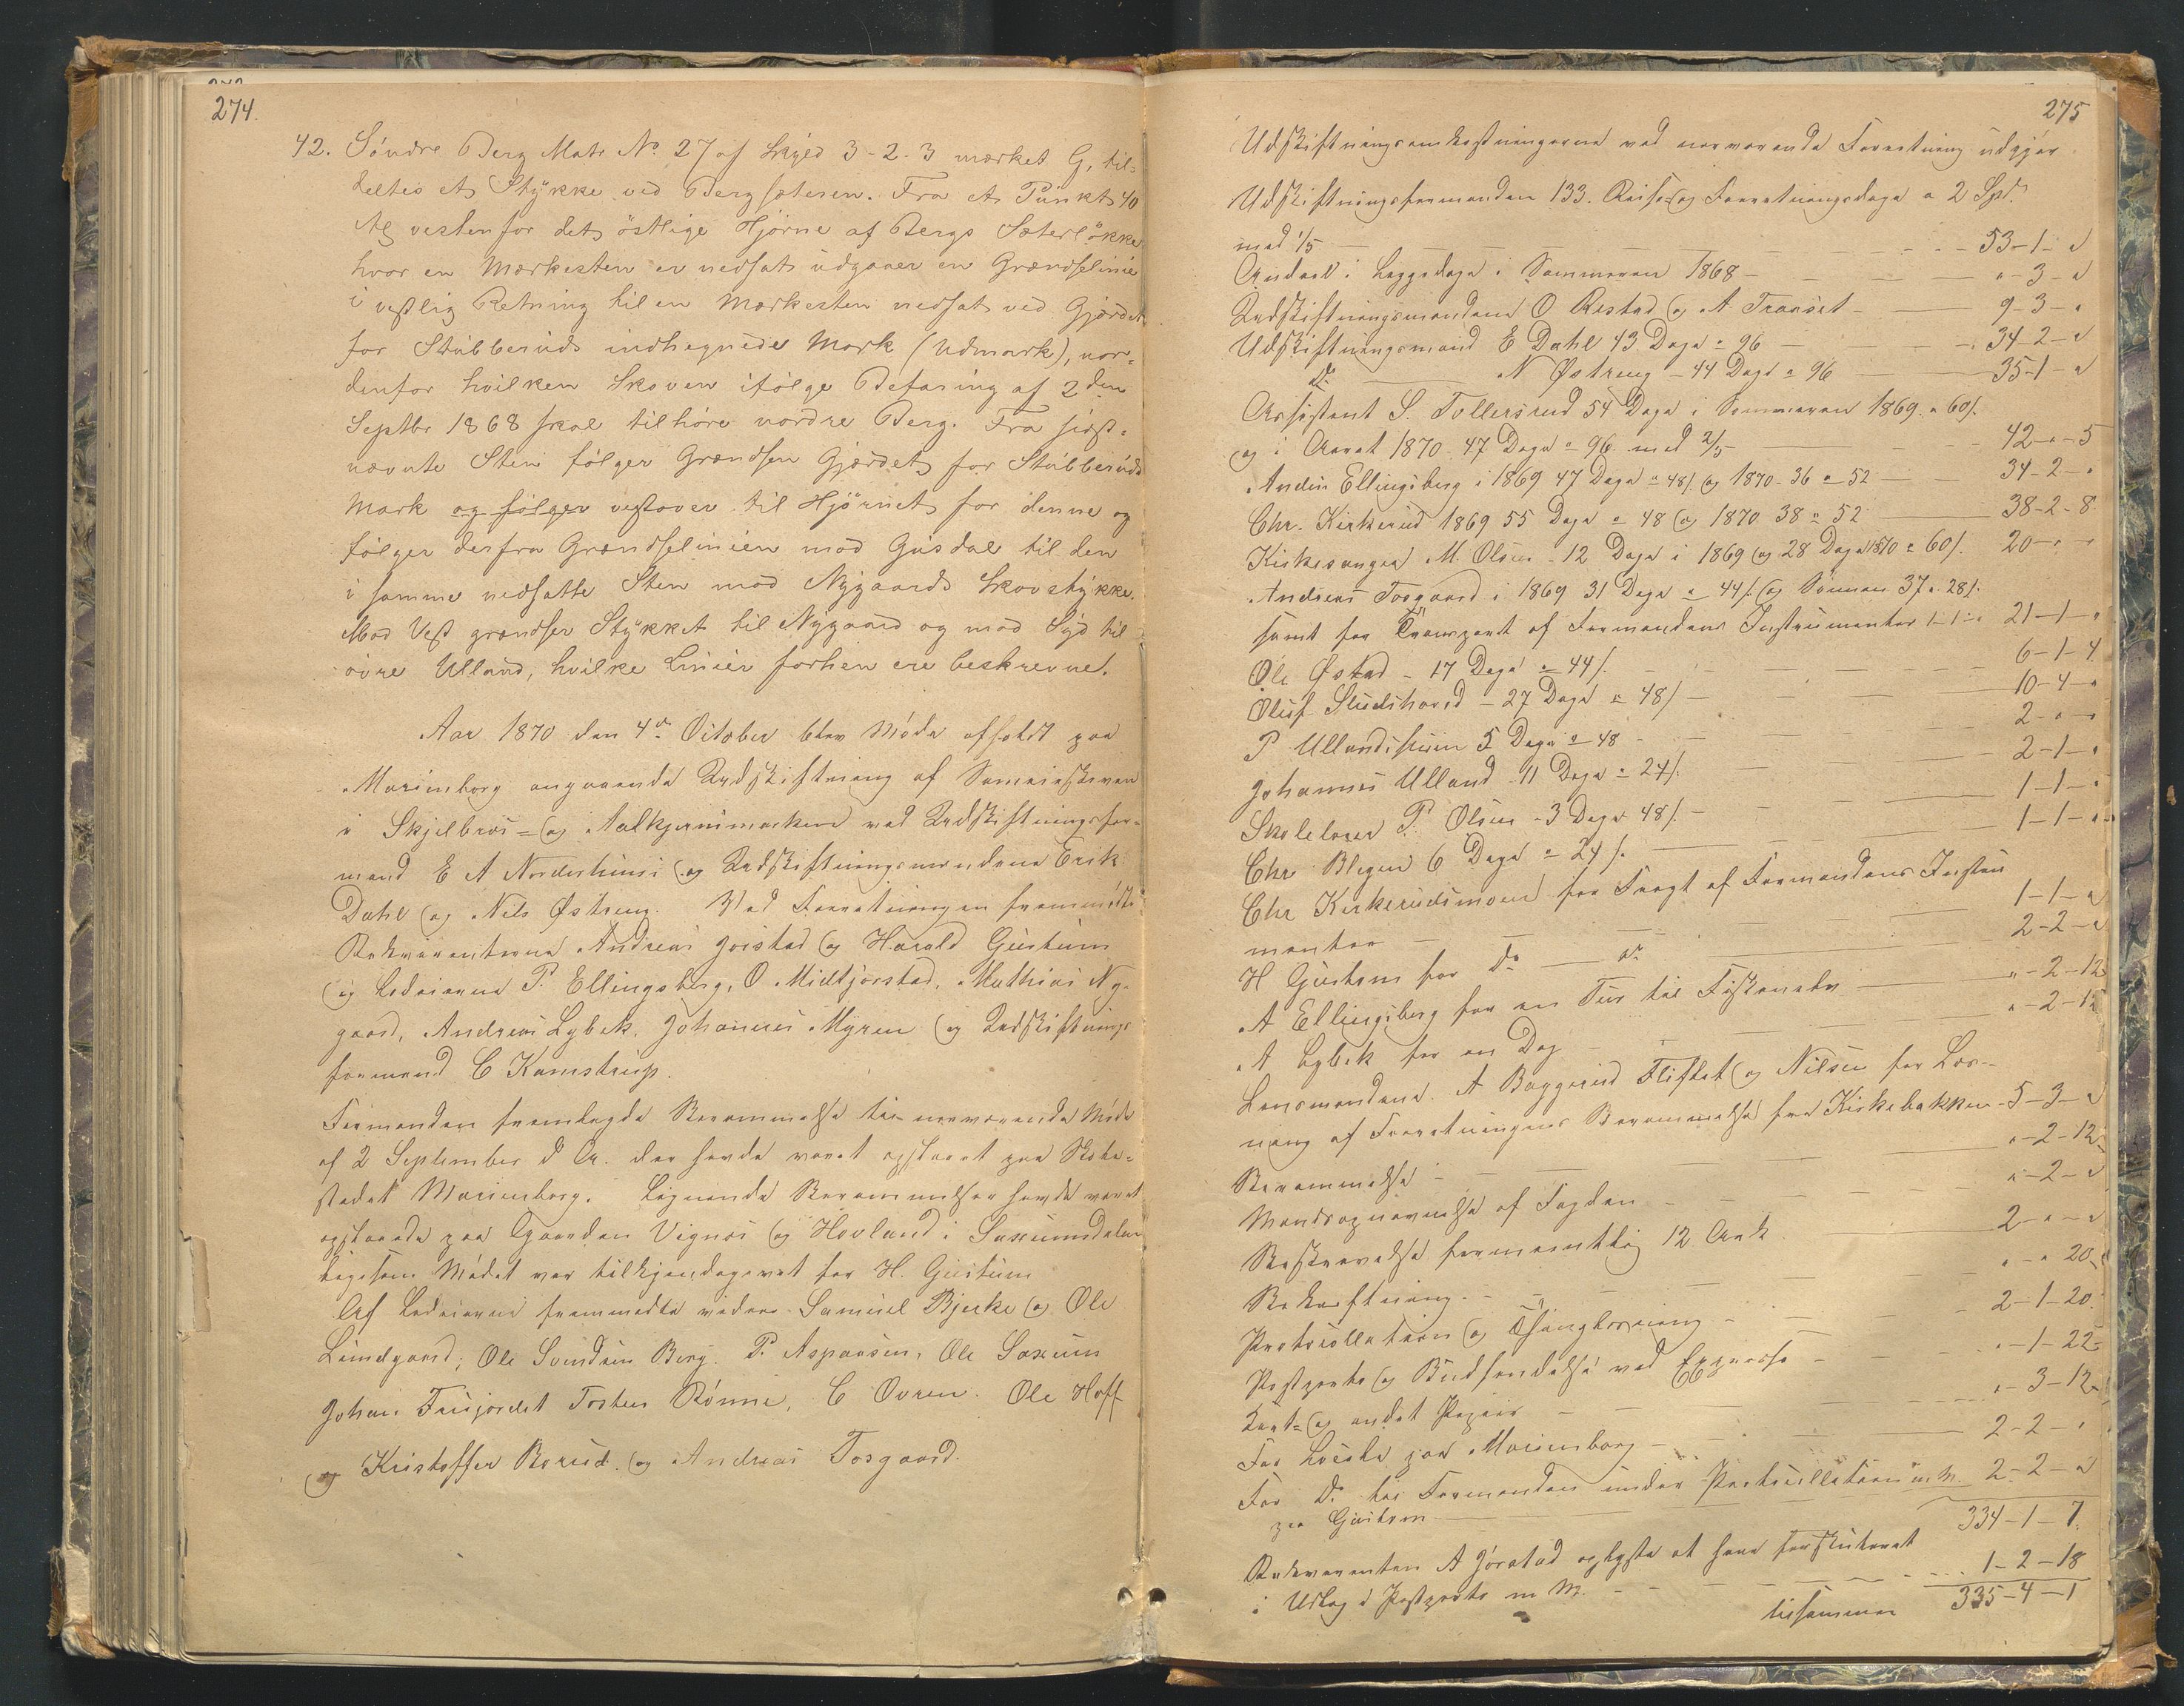 274.
42. Søndre Berg Matr No. 27 af Skyld 3-2-3 mærket G, til-
deltes et Stykke ved Bergsæteren. Fra et Punkt 40
Al vestenfor det østlige Hjørne af Bergs Sæterløkke
hvor en Mærkesten er nedsat udgaaer en Grændselinie
i vestlig Retning til en Mærkesten nedsat ved Gjærdet
for Stubberuds indhegnede Mark (Udmark), nor-
denfor hvilken Skoven ifølge Befaring af 2den
Septbr 1868 skal tilhøre nordre Berg. Fra sidst-
nævnte Sten følger Grændsen Gjærdet for Stubberuds
Mark og følger vestover til Hjørnet for denne og
følger derfra Grændselinien mod Gusdal til den
i samme nedsatte Sten mod Nygaards Skovstykke.
Mod Vest grændser Stykket til Nygaard og mod Syd til
øvre Ulland, hvilke Linier forhen ere beskrevne.
Aar 1870 den 4de October blev Møde afholdt paa
Marienborg angaaende Udskiftning af Sameieskoven
i Skjelbrei- og Aalkjernmarken ved Udskiftningsfor-
mand E A Norderhuus og Udskiftningsmændene Erik
Dahl og Nils Østreng. Ved Forretningen fremmødte
Rekvirenterne Andreas Jørstad og Harald Gustum
og Lodeierne P. Ellingsberg, O Midtjørstad, Mathias Ny-
gaard, Andreas Lybek, Johannes Myren og Udskiftnings
formand C Kamstrup.
Formanden fremlagde Berammelse til nærværende Møde
af 2 September d Ar. der havde været opslaaet paa Skole-
stedet Marienborg. Lignende Berammelser havde været
opslaaede paa Gaarden Vignes og Hovland i Saxumdalen
ligesom Mødet var tilkjendegivet for H. Gustum
Af Lodeierne fremmødte videre Samuel Bjerke og Ole
Lundgaard, Ole Svendsen Berg. P. Aspaasen, Ole Saxum
Johan Frujordet Torsten Rønne, C Øvren. Ole Hoff
og Kristoffer Borud. og Andreas Fosgaard.
275
Udskiftningsomkostningerne ved nærværende Forretning udgjør
Udskiftningsformanden 133. Reise- og Forretningsdage a 2 Spd.
med 1/5 — 53-1-"
Andeel i Læggedage i Sommeren 1868 — "-3-"
Udskiftningsmændene O Restad og A Traaset — 9-3-"
Udskiftningsmand E Dahl 43 Dage a 96 — 34-2-"
Do — N Østreng - 44 Dage a 96 — 35-1-"
Assistent S. Tollersrud 54 Dage i Sommeren 1869. a 60/.
og i Aaret 1870 47 Dage a 96 med 2/5 — 42-"-5
Andrs Ellingsberg i 1869 47 Dage a 48/. og 1870 - 36 a 52 — 34-2-"
Chr. Kirkerud 1869 55 Dage a 48 og 1870 38 a 52 — 38-2-8
Kirkesanger M. Olsen - 12 Dage i 1869 og 28 Dage 1870 a 60/. 20-"-"
Andreas Fosgaard i 1869 31 Dage a 44/. og Sønnen 37 a 28/.
samt for Transport af Formandens Instrumenter 1-1-" 21-1-"
Ole Østad - 17 Dage a 44/. — 6-1-4
Oluf Studshoved - 27 Dage a 48/ — 10-4-"
P Ullandshuun 5 Dage a 48 — 2-"-"
Johannes Ulland - 11 Dage a 24/. — 2-1-"
Skolelærer P. Olsen - 3 Dage 48/. — 1-1-"
Chr Blegen 6 Dage a 24/. — 1-1-"
Chr Kirkerudsmoen for Fragt af Formandens Instru
menter — 1-1-"
H Gustum for do — do — 2-2-"
A Ellingsberg for en Tur til Fiskenæbr — "-2-12
A Lybek for en Dag — "-2-12
Lensmændene. A Baggerud Fliflet og Nilsen for Læs-
ning af Forretningens Berammelse fra Kirkebakken 5-3-"
Berammelse — "-2-12
Mandsopnævnelse af Fogden — "-2-"
Beskrivelse formeentlig 12 Ark — 2-"-"
Bekræftning — "-"20
Protocollation og Thinglæsning — 2-1-20
Postporto og Budsendelse ved Expresse — "-1-22
Kart- og andet Papir — "-3-12
For Locale paa Marienborg — 2-2-"
For Do. hos Formanden under Protocollationen m. M. 2-2-"
paa Gustum
334-1-7.
Rekvirenten A Jørstad oplyste at have forskuteret
i Udlæg i Postporto m M. — 1-2-18
tilsammen 335-4-1